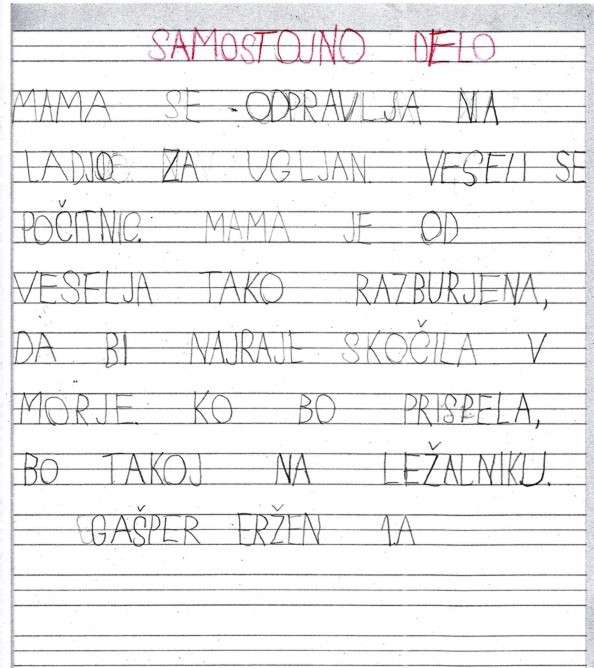 SAMOSTOJNO DELO
MAMA SE ODPRAVLJA NA
LADJO ZA UGLJAN. VESELI SE
POČITNIC. MAMA JE OD
VESELJA TAKO RAZBURJENA,
DA BI NAJRAJE SKOČILA V
MORJE. KO BO PRISPELA,
BO TAKOJ NA LEŽALNIKU.
GAŠPER ERŽEN 1.A